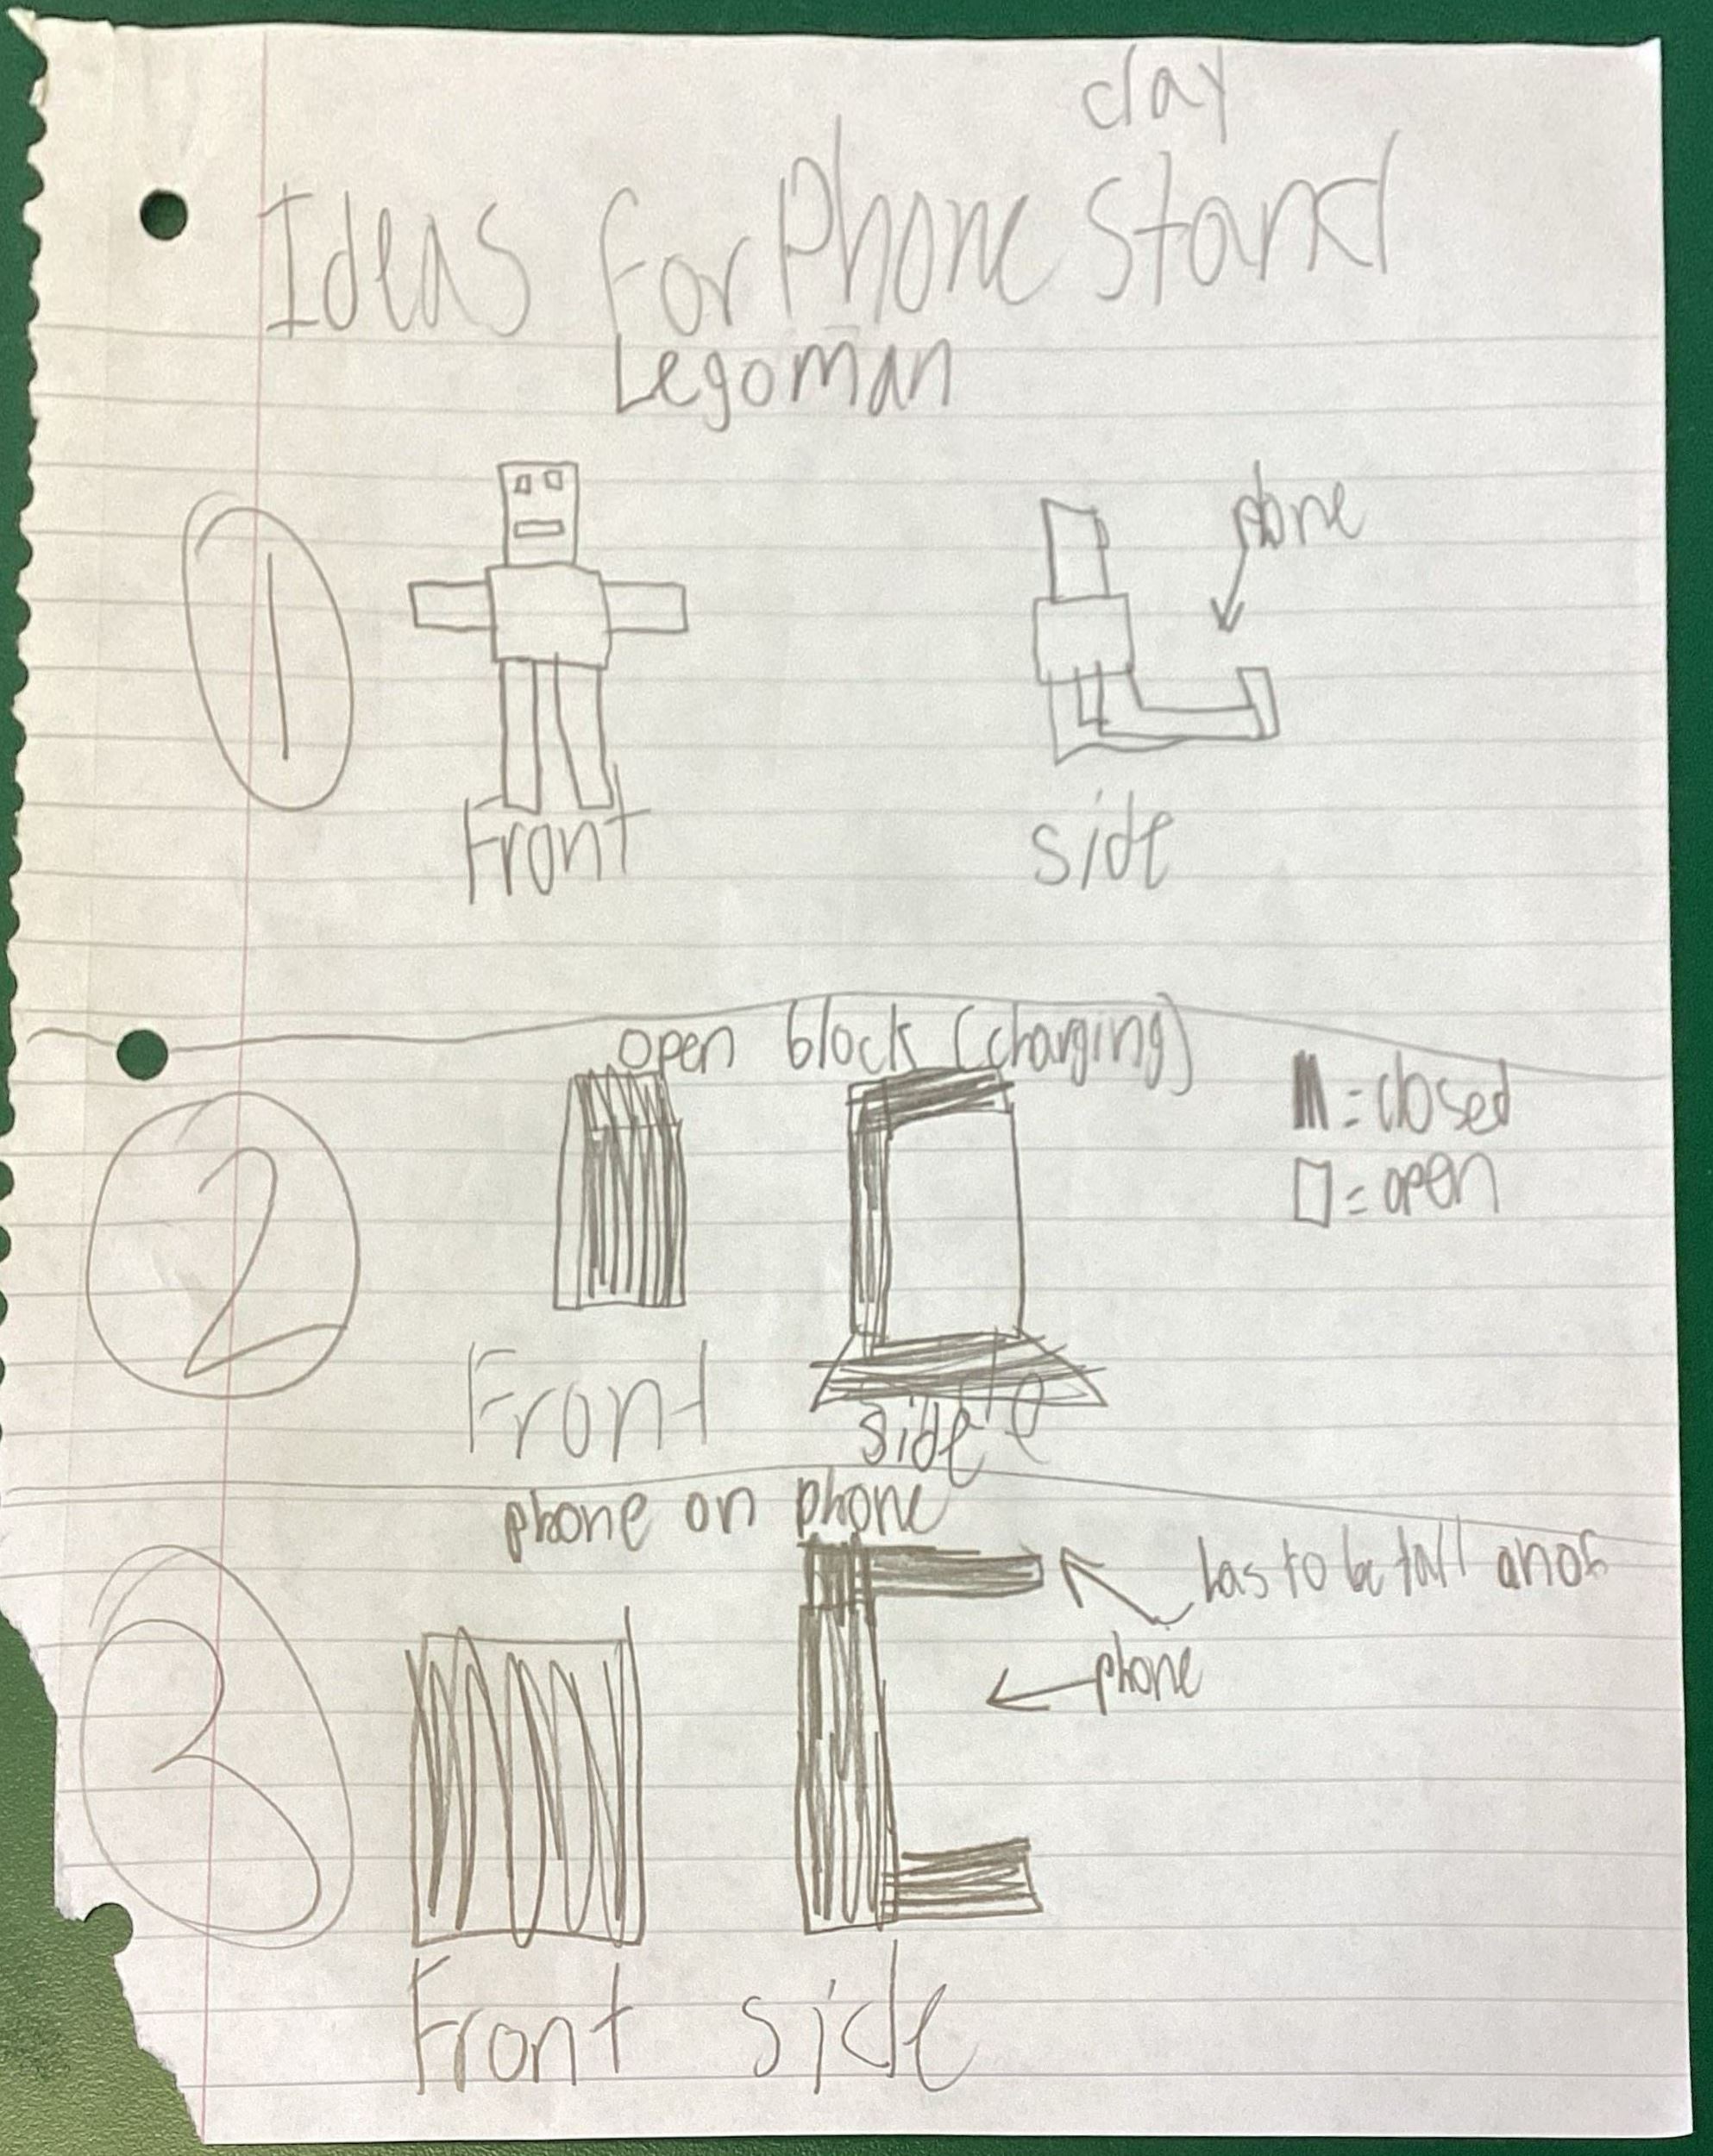 clay
Ideas For Phone Stand
Legoman
1
phone
Front
side
open block (charging)
= closed
= open
2
Front
side
phone on phone
has to be tall
phone
3
Front side